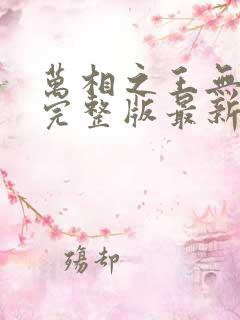 萬相之王無
完整版最新
殤却